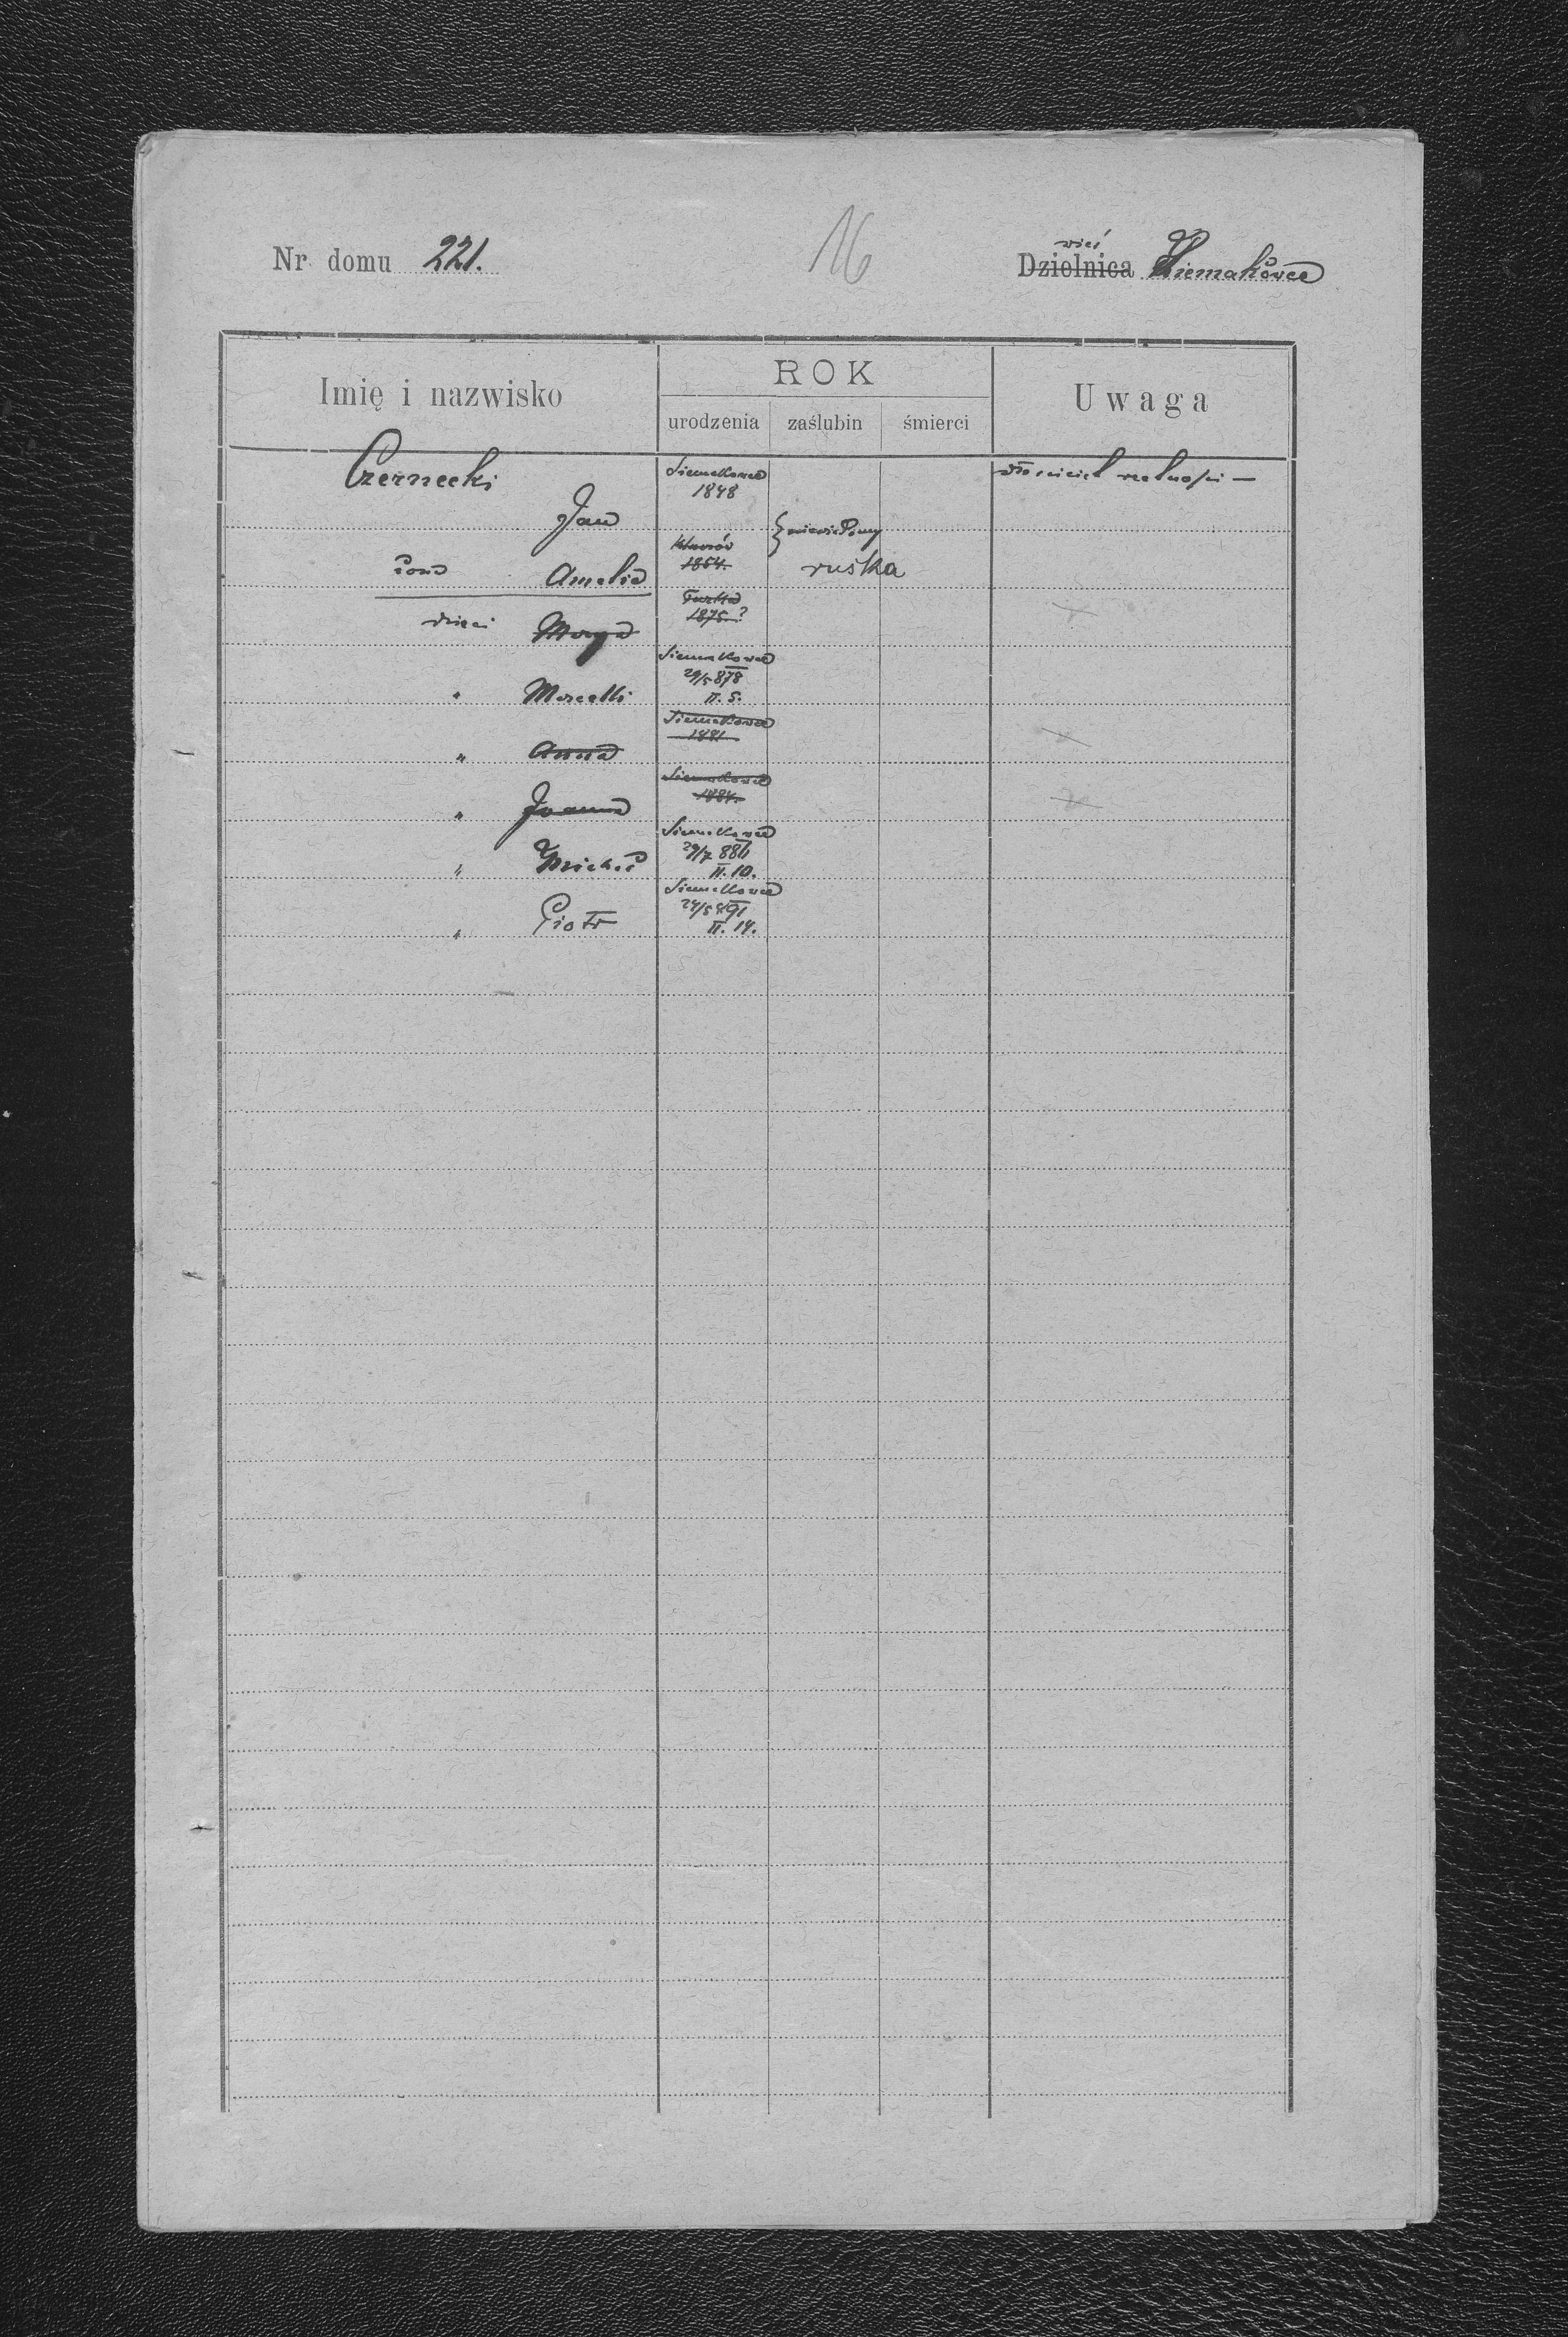 Nr domu 221.
16
wieś
Dzielnica Siemakowce
Imię i nazwisko
ROK
urodzenia zaślubin śmierci
Uwaga
Czernecki
Jan
Siemakowce
1848
właściciel realności —
niewiadomy
żona Amelia
1854.
ruska
dzieci Marya
Turka
1875?
" Marcelli
Siemakowce
29/5 878
II. 5.
" Anna
Siemakowce
1881
" Joanna
Siemakowce
1884.
" Michał
Siemakowce
29/7 886
II. 10.
" Piotr
Siemakowce
24/5 891
II. 14.